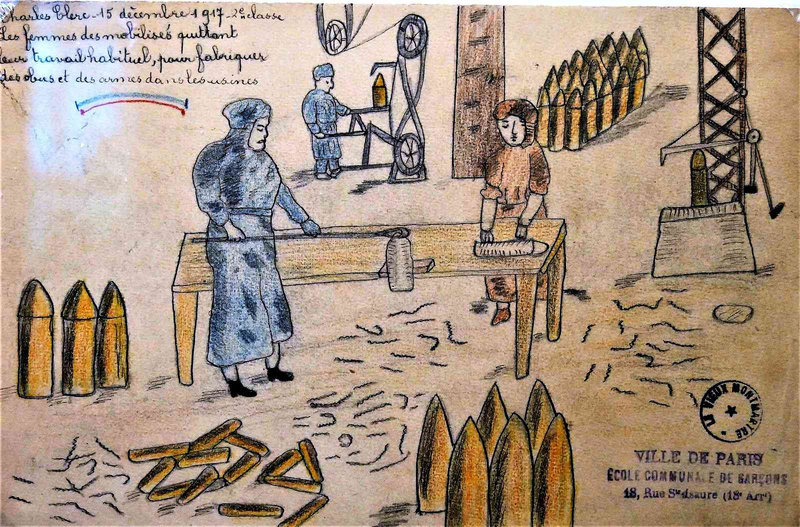 Charles Clerc 15 décembre 1917 2e classe
Les femmes des mobilisés quittant
leur travail habituel, pour fabriquer
des obus et des armes dans les usines
LE VIEUX MONTMARTRE
VILLE DE PARIS
ÉCOLE COMMUNALE DE GARÇONS
18, Rue Ste Isaure (18e Arrt)